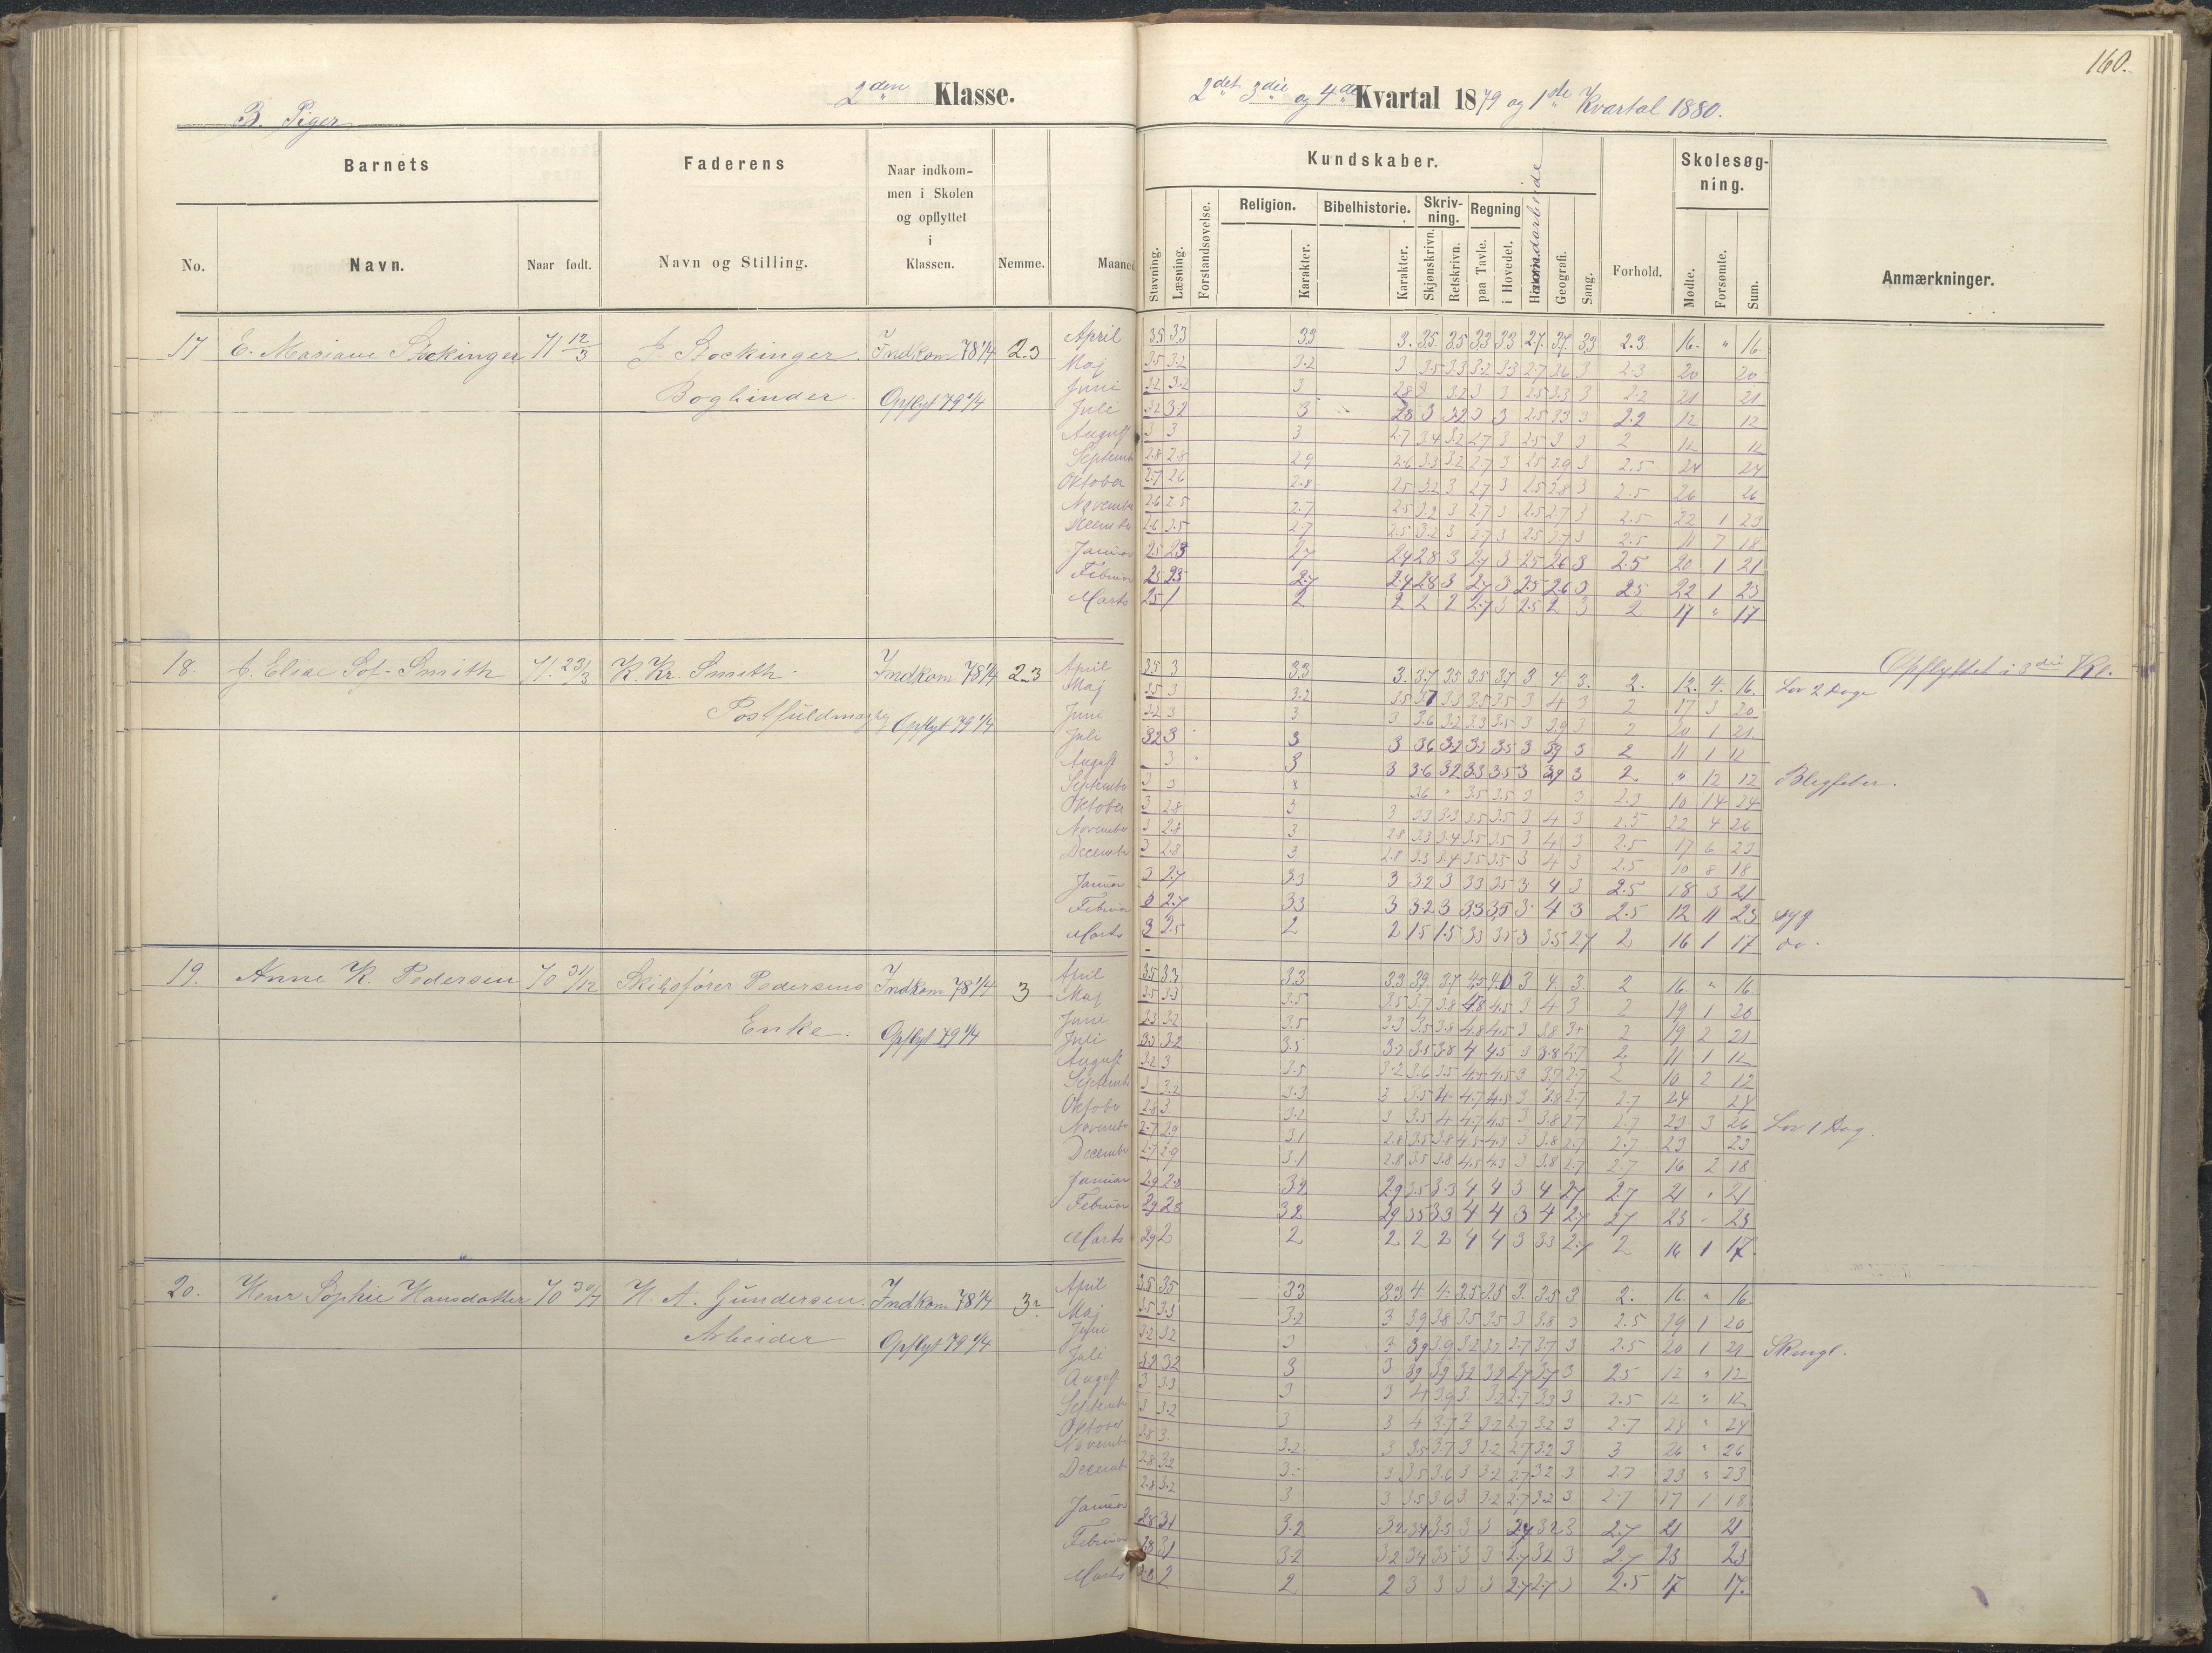 160.
B. Piger
2den Klasse.
2det 3die og 4de Kvartal 1879 og 1ste Kvartal 1880.
Barnets
Faderens
Naar indkom-
men i Skolen
og opflyttet
i
Klassen.
No.
Navn.
Naar født.
Navn og Stilling.
Nemme.
Maaned
Kundskaber.
Stavning.
Læsning.
Forstandsøvelse.
Religion.
Karakter.
Bibelhistorie.
Karakter.
Skriv-
ning.
Skjønskrivn.
Retskrivn.
Regning
paa Tavle.
i Hovedet.
Haandarbeide
Geografi.
Sang.
Forhold.
Skolesøg-
ning.
Mødte.
Forsømte.
Sum.
Anmærkninger.
17 E. Mariane Stockinger 71 12/3 J. Stockinger. Indkom 78 1/4 2.3
Bogbinder. Opflyt 79 1/4
April 3.5 3.3 3.3 3. 3.5 3.5 3.3 3.3 2.7 3.7 3.3 2.3 16. " 16.
Maj 3.5 3.2 3.2 3 3.5 3.3 3.2 3.3 2.7 3.6 3 2.3 20 20
Juni 3.2 3.2 3 2.8 3 3.2 3 3 2.5 3.3 3 2.2 21 21
Juli 3.2 3.2 3 2.8 3 3.2 3 3 2.5 3.3 3 2.2 12 12
August 3 3 3 2.7 3.4 3.2 2.7 3 2.5 3 3 2 12 12
Septemb 2.8 2.8 2.9 2.6 3.3 3.2 2.7 3 2.5 2.9 3 2.5 24 24
Oktober 2.7 2.6 2.8 2.5 3.2 3 2.7 3 2.5 2.8 3 2.5 26 26
Novemb 2.6 2.5 2.7 2.5 3.2 3 2.7 3 2.5 2.7 3 2.5 22 1 23
Decemb 2.6 2.5 2.7 2.5 3.2 3 2.7 3 2.5 2.7 3 2.5 11 7 18
Januar 2.5 2.3 2.7 2.4 2.8 3 2.7 3 2.5 2.6 3 2.5 20 1 21
Februar 2.5 2.3 2.7 2.4 2.8 3 2.7 3 2.5 2.6 3 2.5 22 1 23
Marts 2.5 1 2 2 2 2 2.7 3 2.5 2 3 2 17 " 17
Opflyttet i 3die Kl.
18. J. Elise Sof. Smith 71. 23/3 K. Kr. Smith Indkom 78 1/4 2.3
Postfuldmægtig Opflyt 79 1/4
April 3.5 3 3.3 3. 3.7 3.5 3.5 3.7 3 4 3. 2. 12. 4. 16. Lov 2 Dage
Maj 3.5 3 3.2 3.5 3.7 3.5 3.5 3.5 3 4 3 2 17 3 20
Juni 3.2 3 3 3 3.6 3.2 3.3 3.5 3 3.9 3 2 20 1 21.
Juli 3.2 3 3 3 3.6 3.2 3.3 3.5 3 3.9 3 2 11 1 12
August 3 3 3 3.6 3.2 3.3 3.5 3 3.9 3 2. " 12 12 Blegfeber.
September 3 3 3 3.6 " 3.5 3.5 3 3 2.3 10 14 24
Oktober 3 2.8 3 3 3.3 3.3 3.5 3.5 3 4 3 2.5 22 4 26
November 3 2.8 3 2.8 3.3 3.4 3.5 3.5 3 4 3 2.5 17 6 23
Decemb 3 2.8 3 2.8 3.3 3.4 3.5 3.5 3 4 3 2.5 10 8 18
Januar 3 2.7 3.3 3 3.2 3 3.3 3.5 3 4 3 2.5 18 3 21
Februar 3 2.7 3.3 3 3.2 3 3.3 3.5 3 4 3 2.5 12 11 23 syg
Marts 3 2.5 2 2 1.5 1.5 3.3 3.5 3 3.5 2.7 2 16 1 17 do.
19. Anne K. Pedersen 70 31/12 Skibsfører Pedersens Indkom 78 1/4 3
Enke. Opflyt 79 1/4
April 3.5 3.3 3.3 3.3 3.9 3.7 4.5 4.0 3. 4. 3. 2 16 " 16
Maj 3.5 3.3 3.5 3.5 3.7 3.8 4.8 4.5 3 4 3 2 19 1 20
Juni 3.3 3.2 3.5 3.3 3.5 3.8 4.8 4.5 3 3.8 3+ 2 19 2 21
Juli 3.2 3.2 3.5 3.2 3.5 3.8 4 4.5 3 3.8 2.7 2 11 1 12
August 3.2 3 3.5 3.2 3.6 3.5 4.5 4.5 3 3.7 2.7 2 10 2 12
Septemb 3 3.2 3.3 3 3.5 4 4.7 4.5 3 3.8 2.7 2.7 24 24
Oktober 2.8 3 3.2 3 3.5 4 4.7 4.5 3 3.8 2.7 2.7 23 3 26 Lov 1 Dag.
Novemb 2.7 2.9 3.1 2.8 3.5 3.8 4.5 4.3 3 3.8 2.7 2.7 23 23
Decemb 2.7 2.9 3.1 2.8 3.5 3.8 4.5 4.3 3 3.8 2.7 2.7 16 2 18
Januar 2.9 2.8 3.2 2.9 3.5 3.3 4 4 3 4 2.7 2.7 21 " 21
Februar 2.9 2.8 3.2 2.9 3.5 3.3 4 4 3 4 2.7 2.7 23 " 23
Marts 2.9 2 2 2 2 2 4 4 3 3.3 2.7 2 16 1 17.
20. Henr Sophie Hansdatter 70 30/7 H. A. Gundersen. Indkom 78 1/4 3
Arbeider Opflyt 79 1/4
April 3.5 3.5 3.3 3.3 4. 4. 3.5 3.5 3. 3.5 3 2. 16. " 16.
Maj 3.5 3.3 3.2 3 3.9 3.8 3.5 3.5 3 3.8 3 2.5 19 1 20
Juni 3.2 3.2 3 3 3.9 3.9 3.2 3.2 2.7 3.7 3 2.5 20 1 21
Juli 3.2 3.2 3 3 3.9 3.9 3.2 3.2 2.7 3.7 3 2.5 12 " 12
August 3 3.3 3 3 4 3.9 3 3.2 2.7 3.3 3 2.5 12 " 12
Septemb 3 3.2 3 3 4 3.7 3 3.2 2.7 3.2 3 2.7 24 " 24
Oktober 2.8 3. 3.2 3 3.5 3.7 3 3.2 2.7 3.2 3 3 26 " 26
Novemb 2.8 3.2 3 3 3.5 3.6 3 3.2 2.7 3.2 3 2.7 23 " 23
Decemb 2.8 3.2 3 3 3.5 3.6 3 3.2 2.7 3.2 3 2.7 17 1 18
Januar 2.8 3.1 3.2 3.2 3.4 3.5 3 3 2.7 3.2 3 2.7 21 21
Februar 2.8 3.1 3.2 3.2 3.4 3.5 3 3 2.7 3.2 3 2.7 23 23
Marts 2.8 2 2 2 3 3 3 3 2.7 2.7 3 2.5 17 17.